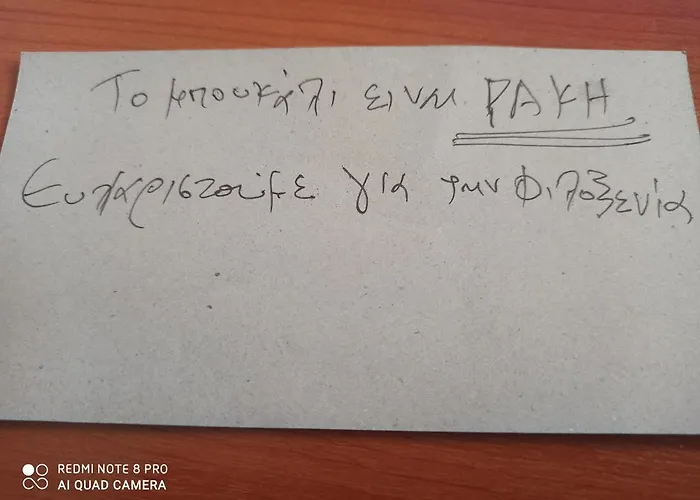 Το μπουκάλι ειναι ΡΑΚΗ
Ευχαριστούμε για την φιλοξενία
REDMI NOTE 8 PRO
AI QUAD CAMERA